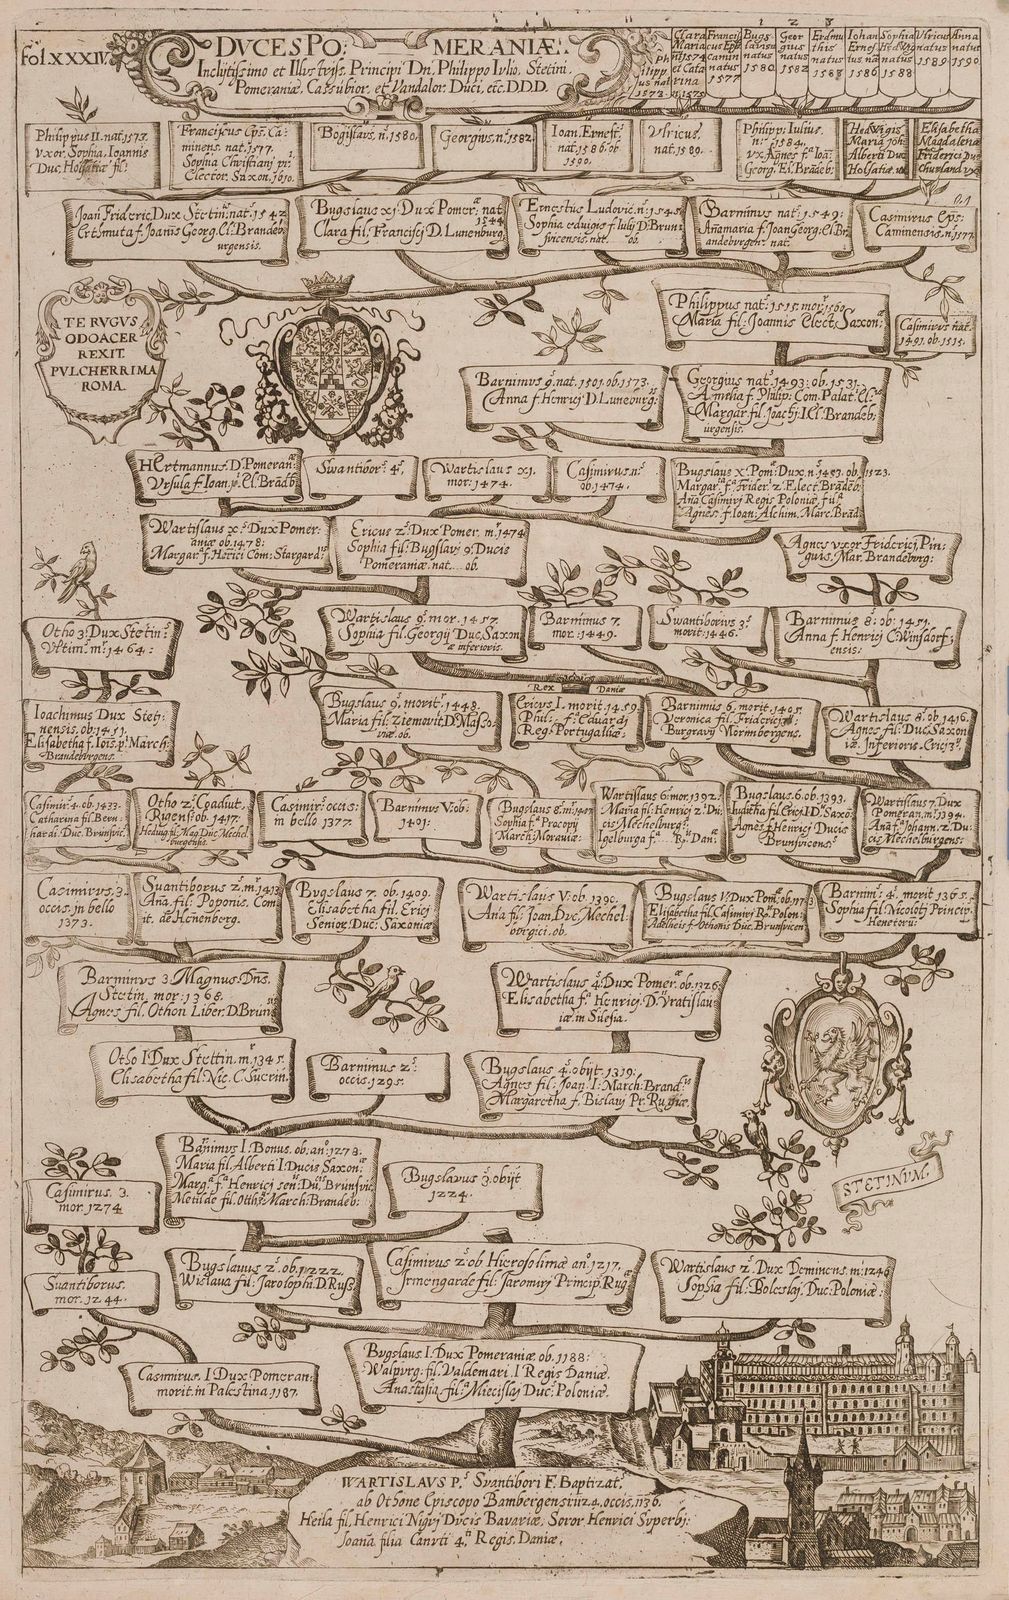 fol. XXXIV.
DVCES PO. MERANIÆ.
Inclytissimo et Illustriss. Principi Dn. Philippo Iulio, Stetini,
Pomeraniæ, Cassubior. et Vandalor. Duci, etc. D.D.D.
1 2 3
Clara Maria n. 1574
Bugs laus natus 1580
Geor gius natus 1582
Erdmu this natus
Iohan Ernes. natus 1586
Sophia Hedwig nata 1588
Vlricus natus 1589
Anna natus 1590
Philippus II. nat. 1573.
vxor. Sophia, Ioannis
Duc. Holsatiæ fil:
Franciscus Eps. Ca-
minens. nat. 1577.
Sophia Christiani
Elector. Saxon. 1610.
Bogislaus, n. 1580.
Georgius, n. 1582.
Ioan. Ernest.
nat. 1586. ob
1590.
Vlricus.
nat. 1589.
Philipp. Iulius.
n. 1584.
vx. Agnes fa. Ioa:
Georg. El. Brãdeb:
Hedwigis
Maria Joh:
Alberti Duc
Holsatiæ. vx
Elisabetha
Magdalena
Friderici Duc
Churland vx
Joan Frideric Dux Stetin. nat. 1542
Erthmuta f. Joanis Georg. El. Brandeb
urgensis.
Bugslaus XI. Dux Pomer. nat
1544
Clara fil. Francisci D. Lunenburg.
Ernestus Ludovic. n. 1545
Sophia eduigis f. Iulij D. Brun
svicensis. nat. ob.
Barnimus nat. 1549:
Anamaria f. Joan Georg. El. Br
andeburgen. nat.
Casimirus Eps:
Caminensis. n. 1577.
TE RVGVS
ODOACER
REXIT
PVLCHERRIMA
ROMA.
Philippus nat. 1515. mor. 1560.
Maria fil: Joannis Elect. Saxon:
Casimirus nat.
1491. ob. 1515.
Barnimus 9. nat. 1501. ob. 1573.
Anna f. Henrici D. Luneburg:
Georgius nat. 1493. ob. 1531.
Amelia f. Philip: Com. Palat. El.
Margar fil. Joachi. I El. Brandeb:
urgensis.
Hertmannus. D. Pomeran:
Vrsula f. Ioan El. Brãdb.
Swantibor. 4.
Wartislaus XI.
mor: 1474.
Casimirus. n.
ob. 1474.
Bugslaus X. Pom: Dux. n. ob. 1523.
Margar. f. Frider. 2. Elect. Brãdeb.
Aña Casimiri Regis Poloniæ. f.
Agnes f. Ioan: Alchim. Marc. Brãd.
Wartislaus X. Dux Pomer:
aniæ ob. 1478:
Margar. f. Hẽrici Com: Stargard
Ericus 2. Dux Pomer. m. 1474
Sophia fil: Bugslavi 9. Ducis
Pomeraniæ. nat.... ob.
Agnes vxor Friderici, Pin
guis. Mar. Brandeburg:
Otho 3. Dux Stetin:
Vltim. m. 1464:
Wartislaus 9. mor. 1457.
Sophia fil. Georgij Duc. Saxon
æ inferioris.
Barnimus 7.
mor: 1449.
Swantiborius 3.
morit. 1446.
Barnimus 8: ob: 1451.
Anna f. Henrici C. Winsdorf;
ensis:
Rex Daniæ
Ioachimus Dux Stet;
inensis. ob. 1451.
Elisabetha f. Iois. March:
Brandeburgens.
Bugslaus 9. morit. 1448.
Maria fil: Ziemovit. D. Maso
viæ. ob.
Ericus I. morit. 1459.
Phil: f: Eduardj
Reg: Portugalliæ.
Barnimus 6. morit. 1405.
Veronica fil. Friderici
Burgravij Normbergens.
Wartislaus 8. ob. 1416.
Agnes fil: Duc. Saxon
iæ. Inferioris. Erici
Casimir. 4. ob. 1433.
Catharina fil. Bern
hardi. Duc. Brunsvic.
Otho 2. Coadiut.
Rigens. ob. 1417.
Hedvig fil. Mag. Duc. Mechel
burgensis.
Casimir. occis:
in bello 1377.
Barnimus V. ob:
1401:
Bugslaus 8. m.
Sophia f. Procopij
March: Moraviæ:
Wartislaus 6. mor. 1392:
Maria fil: Henrici 2. Du:
cis Mechelburg:
Igelburga f. Dan:
Bugslaus. 6. ob. 1393.
Iuditha fil. Erici I D. Saxo:
Agnes Henrici Ducis
Brunsvicens:
Wartislaus 7. Dux
Pomeran. m. 1394.
Aña f. Johann. 2. Du
cis Mechelburgens:
Casimirus. 3.
occis. in bello
1373.
Suantiborus 2. m. 1413
Aña. fil. Poponis. Com
it. de Henenberg.
Bugslaus 7. ob. 1409.
Elisabetha fil. Erici
Senior. Duc: Saxoniæ
Wartislaus V. ob. 1390.
Aña fil: Joan. Duc. Mechel:
burgici. ob.
Bugslaus V. Dux Pom. ob.
Elisabetha fil. Casimiri R. Polon:
Adelheis f. Othonis Duc. Brunsvicen
Barnim. 4. morit 1365.
Sophia fil: Nicoloti Princip.
Henetoru:
Barnimus 3. Magnus. Dns.
Stetin. mor: 1368.
Agnes fil. Othon Liber. D. Bruns
Wartislaus 4. Dux Pomer. ob. 1326.
Elisabetha f. Henrici. D. Vratislav
iæ in Silesia.
Otho I Dux Stettin. m. 1345.
Elisabetha fil. Nic. C. Suerin.
Barnimus 2.
occis. 1295.
Bugslaus 4. obijt 1319.
Agnes fil: Joan. I. March: Brand.
Margaretha f. Bislavi Pr. Rugiæ.
STETINVM.
Casimirus. 3.
mor. 1274
Barnimus I. Bonus. ob. an. 1278.
Maria fil. Alberti I. Ducis Saxon:
Marg. f. Henrici sen: Du: Brunsvic
Metilde fil. Oth. March: Brandeb:
Bugslaus 3. obijt
1224.
Suantiborus.
mor. 1244.
Bugslauus 2. ob. 1222.
Wislava fil. Jaroslophi. D. Russ
Casimirus 2. ob Hierosolimæ an. 1217.
Irmengarde fil: Jaromiri Princip. Rug.
Wartislaus 2. Dux Deminens. m. 1246
Sophia fil: Boleslai. Duc: Poloniæ:
Casimirus. I Dux Pomeran:
morit. in Palestina. 1187.
Bugslaus I. Dux Pomeraniæ. ob. 1188:
Walpurg. fil. Valdemari. I Regis Daniæ.
Anastasia fil: Miecislaj Duc: Poloniæ.
WARTISLAVS P. Svantibori F. Baptizat.
ab Othone Episcopo Bambergensi 1124. occis. 1136.
Heila fil. Henrici Nigri Ducis Bavariæ, Soror Henrici Superbj:
Joana filia Canuti 4. Regis. Daniæ.